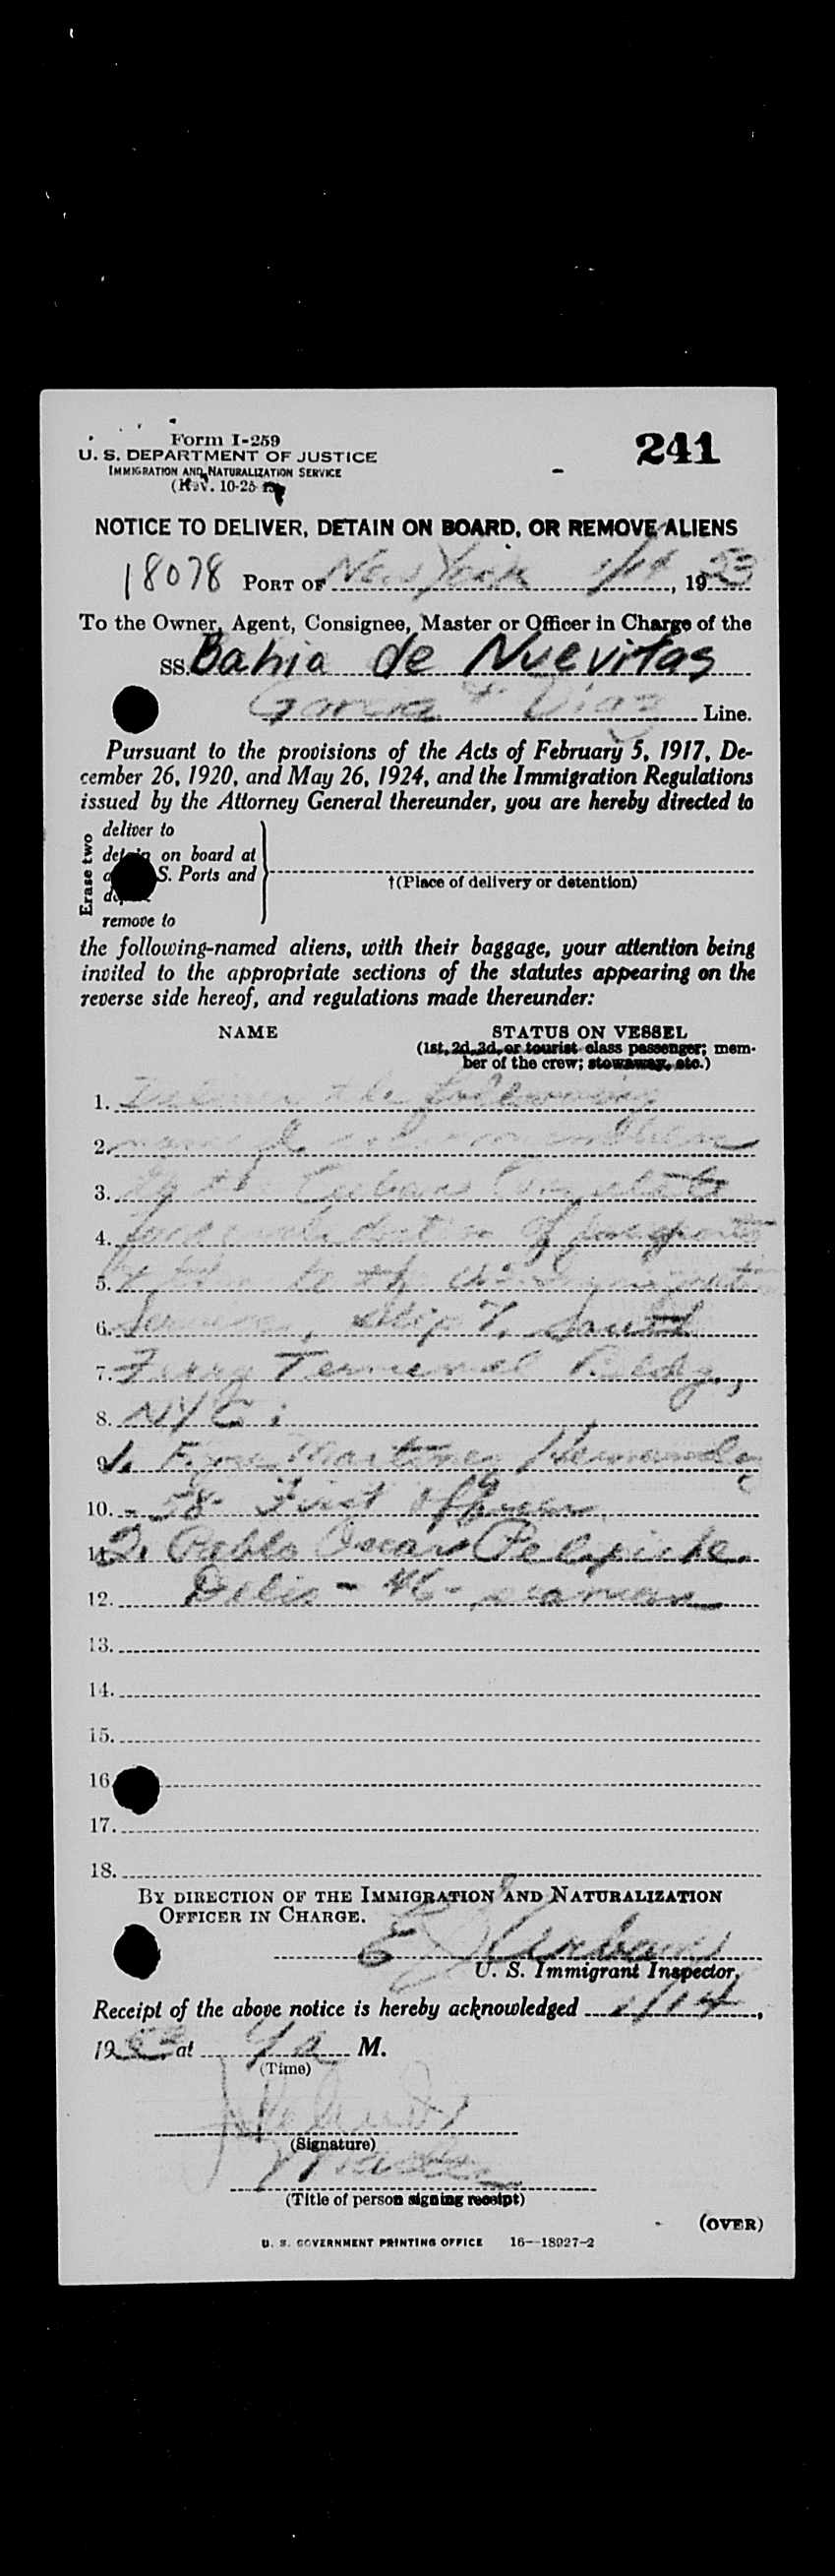 Form I-259
241
U. S. DEPARTMENT OF JUSTICE
IMMIGRATION AND NATURALIZATION SERVICE
(Rev. 10-25-
NOTICE TO DELIVER, DETAIN ON BOARD, OR REMOVE ALIENS
18078 PORT OF New York 1/14, 1953
To the Owner, Agent, Consignee, Master or Officer in Charge of the
SS. Bahia de Nuevitas
Garcia + Diaz Line.
Pursuant to the provisions of the Acts of February 5, 1917, De-
cember 26, 1920, and May 26, 1924, and the Immigration Regulations
issued by the Attorney General thereunder, you are hereby directed to
Erase two
deliver to
detain on board at
S. Ports and
†(Place of delivery or detention)
remove to
the following-named aliens, with their baggage, your attention being
invited to the appropriate sections of the statutes appearing on the
reverse side hereof, and regulations made thereunder:
NAME
STATUS ON VESSEL
(1st, 2d, 3d, or tourist class passenger; mem-
ber of the crew; stowaway, etc.)
1. Deliver the following
2. named
3. the Cuban Consulate
4. for of passports
5. to the
6. Service, Slip 7, South
7. Ferry Terminal Bldg,
8. NYC:
9. 1. Martinez Hernandez
10. - 58 - First Officer
11. 2. Pablo Oscar
12. Delis - 46 - seaman
13.
14.
15.
16.
17.
18.
BY DIRECTION OF THE IMMIGRATION AND NATURALIZATION
OFFICER IN CHARGE.
E
U. S. Immigrant Inspector.
Receipt of the above notice is hereby acknowledged 1/14,
1953 at 9 a M.
(Time)
(Signature)
Master
(Title of person signing receipt)
(OVER)
U. S. GOVERNMENT PRINTING OFFICE 16—18027-2